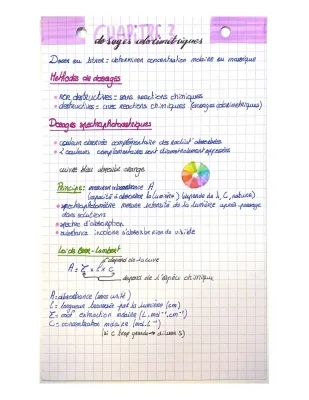 CHAPITRE 3
dosages colorimétriques
Doser ou titrer = déterminer concentration molaire ou massique
Méthodes de dosages
• non destructives = sans réactions chimiques
• destructives = avec réactions chimiques (dosages colorimétriques)
Dosages spectrophotométriques
• couleur absorbée complémentaire des radiat° absorbées
• 2 couleurs complémentaires sont diamétralement opposées
cuivre bleu absorbe orange
Principe: mesurer absorbance A
(capacité à absorber la lumière) (dépends de λ, C, nature)
• spectrophotomètre mesure intensité de la lumière après passage
dans solutions
• spectre d'absorption
• substance incolore n'absorbe rien du visible
Loi de Beer-Lambert
dépend de la cuve
A = Σ x l x C
dépend de l'espèce chimique
A = absorbance (sans unité)
l = longueur traversée par la lumière (cm)
Σ = coef extinction molaire (L.mol⁻¹.cm⁻¹)
C = concentration molaire (mol.L⁻¹)
(si C trop grande → diluer S)